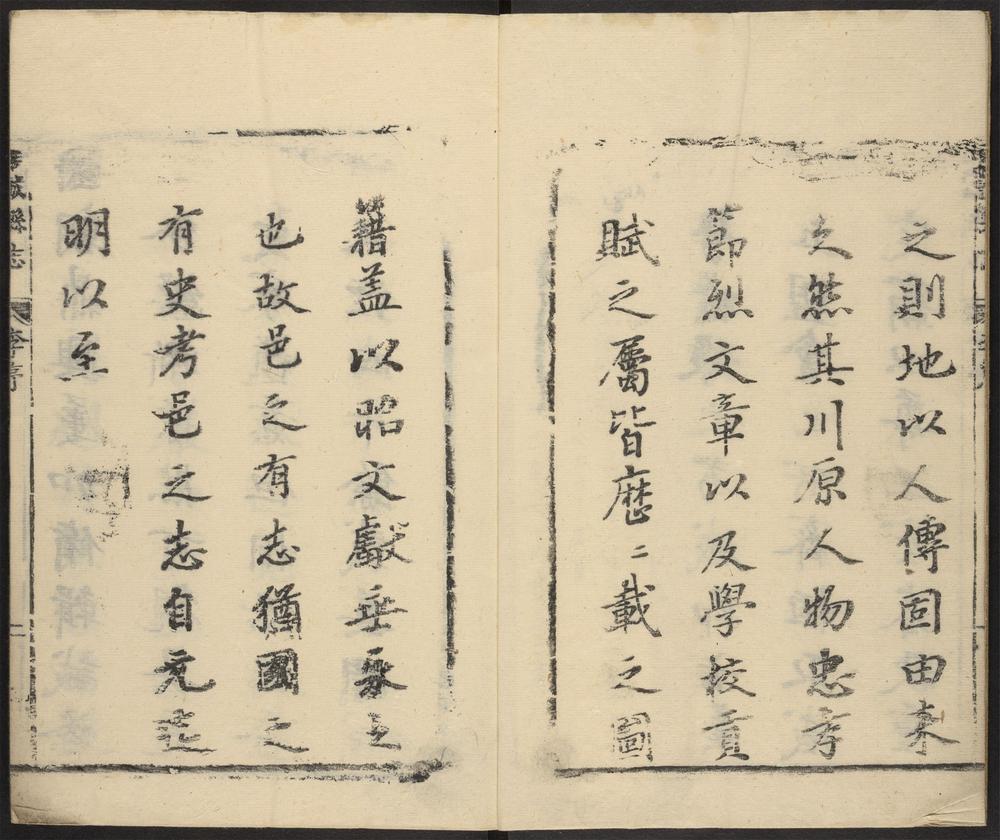 之則地以人傳固由来
久然其川原人物忠孝
節烈文章以及學校貢
賦之屬皆歷二載之圖
籍盖以昭文獻垂永久
也故邑之有志猶國之
有史考邑之志自元迄
明以至
縣志
序
二